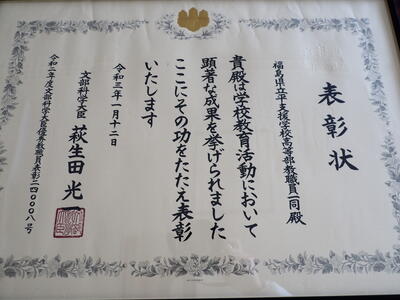 表彰状
福島県立平支援学校高等部教職員一同殿
貴殿は学校教育活動において
顕著な成果を挙げられました
ここにその功をたたえ表彰
いたします
令和三年一月十二日
文部科学大臣 萩生田光一
令和二年度文部科学大臣優秀教職員表彰二四〇〇〇八号